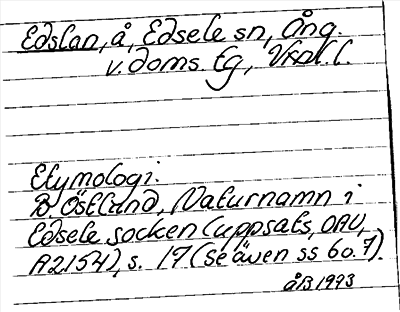 Edslan, å, Edsele sn, Ång.
v. doms. tg, Vknl. l.
Etymologi:
B Östlund, Naturnamn i
Edsele socken (uppsats, OAU,
A2154), s. 17 (se även ss 6 o. 7).
ÅB 1993